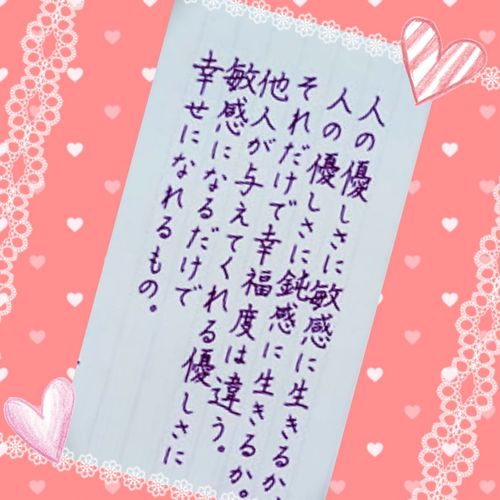 人の優しさに敏感に生きるか、
人の優しさに鈍感に生きるか。
それだけで幸福度は違う。
他人が与えてくれる優しさに
敏感になるだけで
幸せになれるもの。